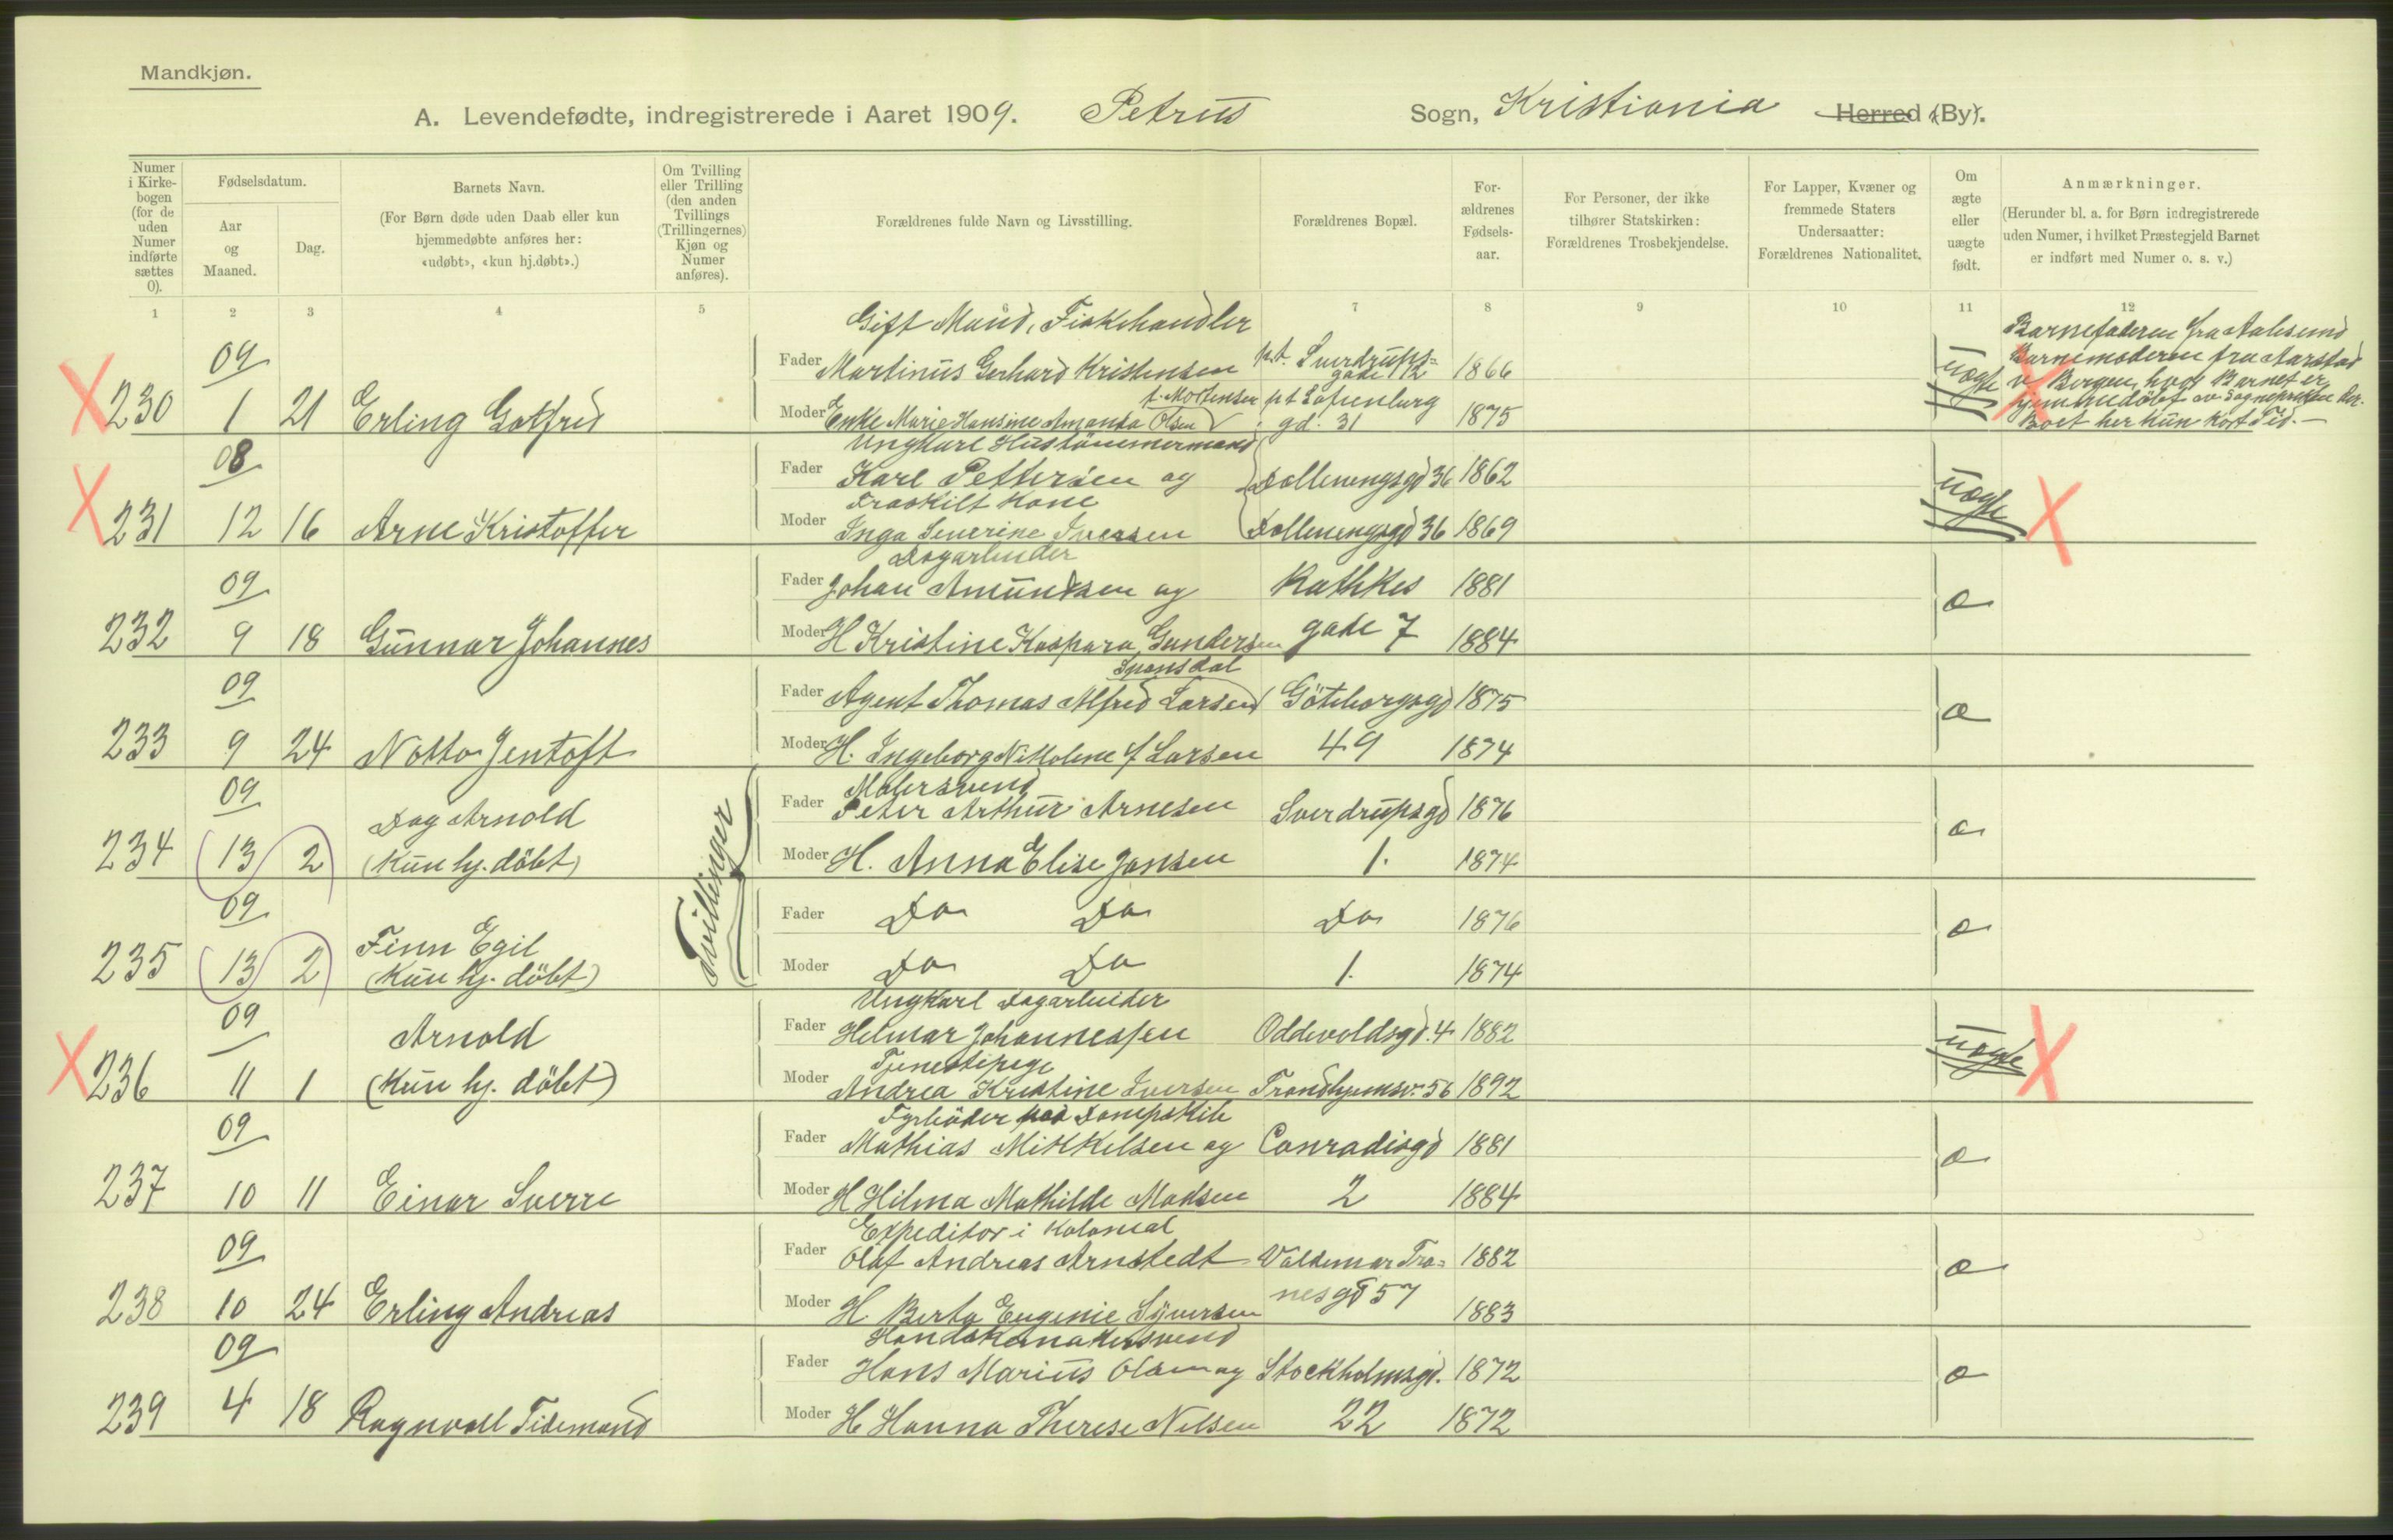 Mandkjøn.
A. Levendefødte, indregistrerede i Aaret 1909. Petrus Sogn, Kristiania Herred (By).
Numer i Kirkebogen (for de uden Numer indførte sættes 0).
Fødselsdatum.
Aar og Maaned.
Dag.
Barnets Navn.
(For Børn døde uden Daab eller kun hjemmedøbte anføres her: «udøbt», «kun hj.døbt».)
Om Tvilling eller Trilling (den anden Tvillings (Trillingernes) Kjøn og Numer anføres).
Forældrenes fulde Navn og Livsstilling.
Forældrenes Bopæl.
Forældrenes Fødselsaar.
For Personer, der ikke tilhører Statskirken: Forældrenes Trosbekjendelse.
For Lapper, Kvæner og fremmede Staters Undersaatter: Forældrenes Nationalitet.
Om ægte eller uægte født.
Anmærkninger.
(Herunder bl. a. for Børn indregistrerede uden Numer, i hvilket Præstegjeld Barnet er indført med Numer o. s. v.)
1 2 3 4 5 6 7 8 9 10 11 12
Gift Mand, Fiskehandler
09 Fader Martinus Gerhard Kristensen p.t. Sverdrups=gade 12 1866
230 1 21 Erling Gotfred Moder Enke Marie Hansine Amanda Olsen f. Mortensen p t Sofienburg gd. 31 1875 uægte
Barnefaderen fra Aalesund
Barnemoderen fra Aarstad
v. Bergen, hvor Barnet er
hjemmedøbt av Sognepresten der.
Boet her kun kort Tid.—
Ungkarl Hustømmermand
08 Fader Karl Pettersen og Dælenengsgd 36 1862
Fraskilt Kone
231 12 16 Arne Kristoffer Moder Inga Severine Iversen Dælenengsgd 36 1869 uægte
Dagarbeider
09 Fader Johan Amundsen og Rathkes 1881
232 9 18 Gunnar Johannes Moder H Kristine Kaspara Gundersen gade 7 1884 æ
09 Fader Agent Thomas Alfred Larsen Svansdal Göteborgsgd 1875
233 9 24 Notto Jentoft Moder H. Ingeborg Nikoline f Larsen 49 1874 æ
Malersvend
09 Dag Arnold Fader Peter Arthur Arnesen Sverdrupsgd 1876
234 13 2 (kun hj. döbt) Moder H. Anna Elise Jansen 1. 1874 æ
Tvillinger
09 Finn Egil Fader Do Do Do 1876
235 13 2 (kun hj. döbt) Moder Do Do 1. 1874 æ
Ungkarl Dagarbeider
09 Arnold Fader Helmar Johannesen Oddevoldsgd. 4 1882
Tjenestepige
236 11 1 (kun hj. döbt) Moder Andrea Kristine Iversen Trondhjemsv. 56 1892 uægte
Fyrböder paa Dampskib
09 Fader Mathias Mikkelsen og Conradisgd 1881
237 10 11 Einar Sverre Moder H Hilma Mathilde Madsen 2 1884 æ
Expeditor i Kolonial
09 Fader Olaf Andreas Arnstedt Valdemar Tra= 1882
238 10 24 Erling Andreas Moder H. Berta Eugenie Syversen nesgd 57 1883 æ
Handskemakersvend
09 Fader Hans Marius Olsen og Stockholmsgd. 1872
239 4 18 Ragnvall Tidemand Moder H Hanna Therese Nilsen 22 1872 æ